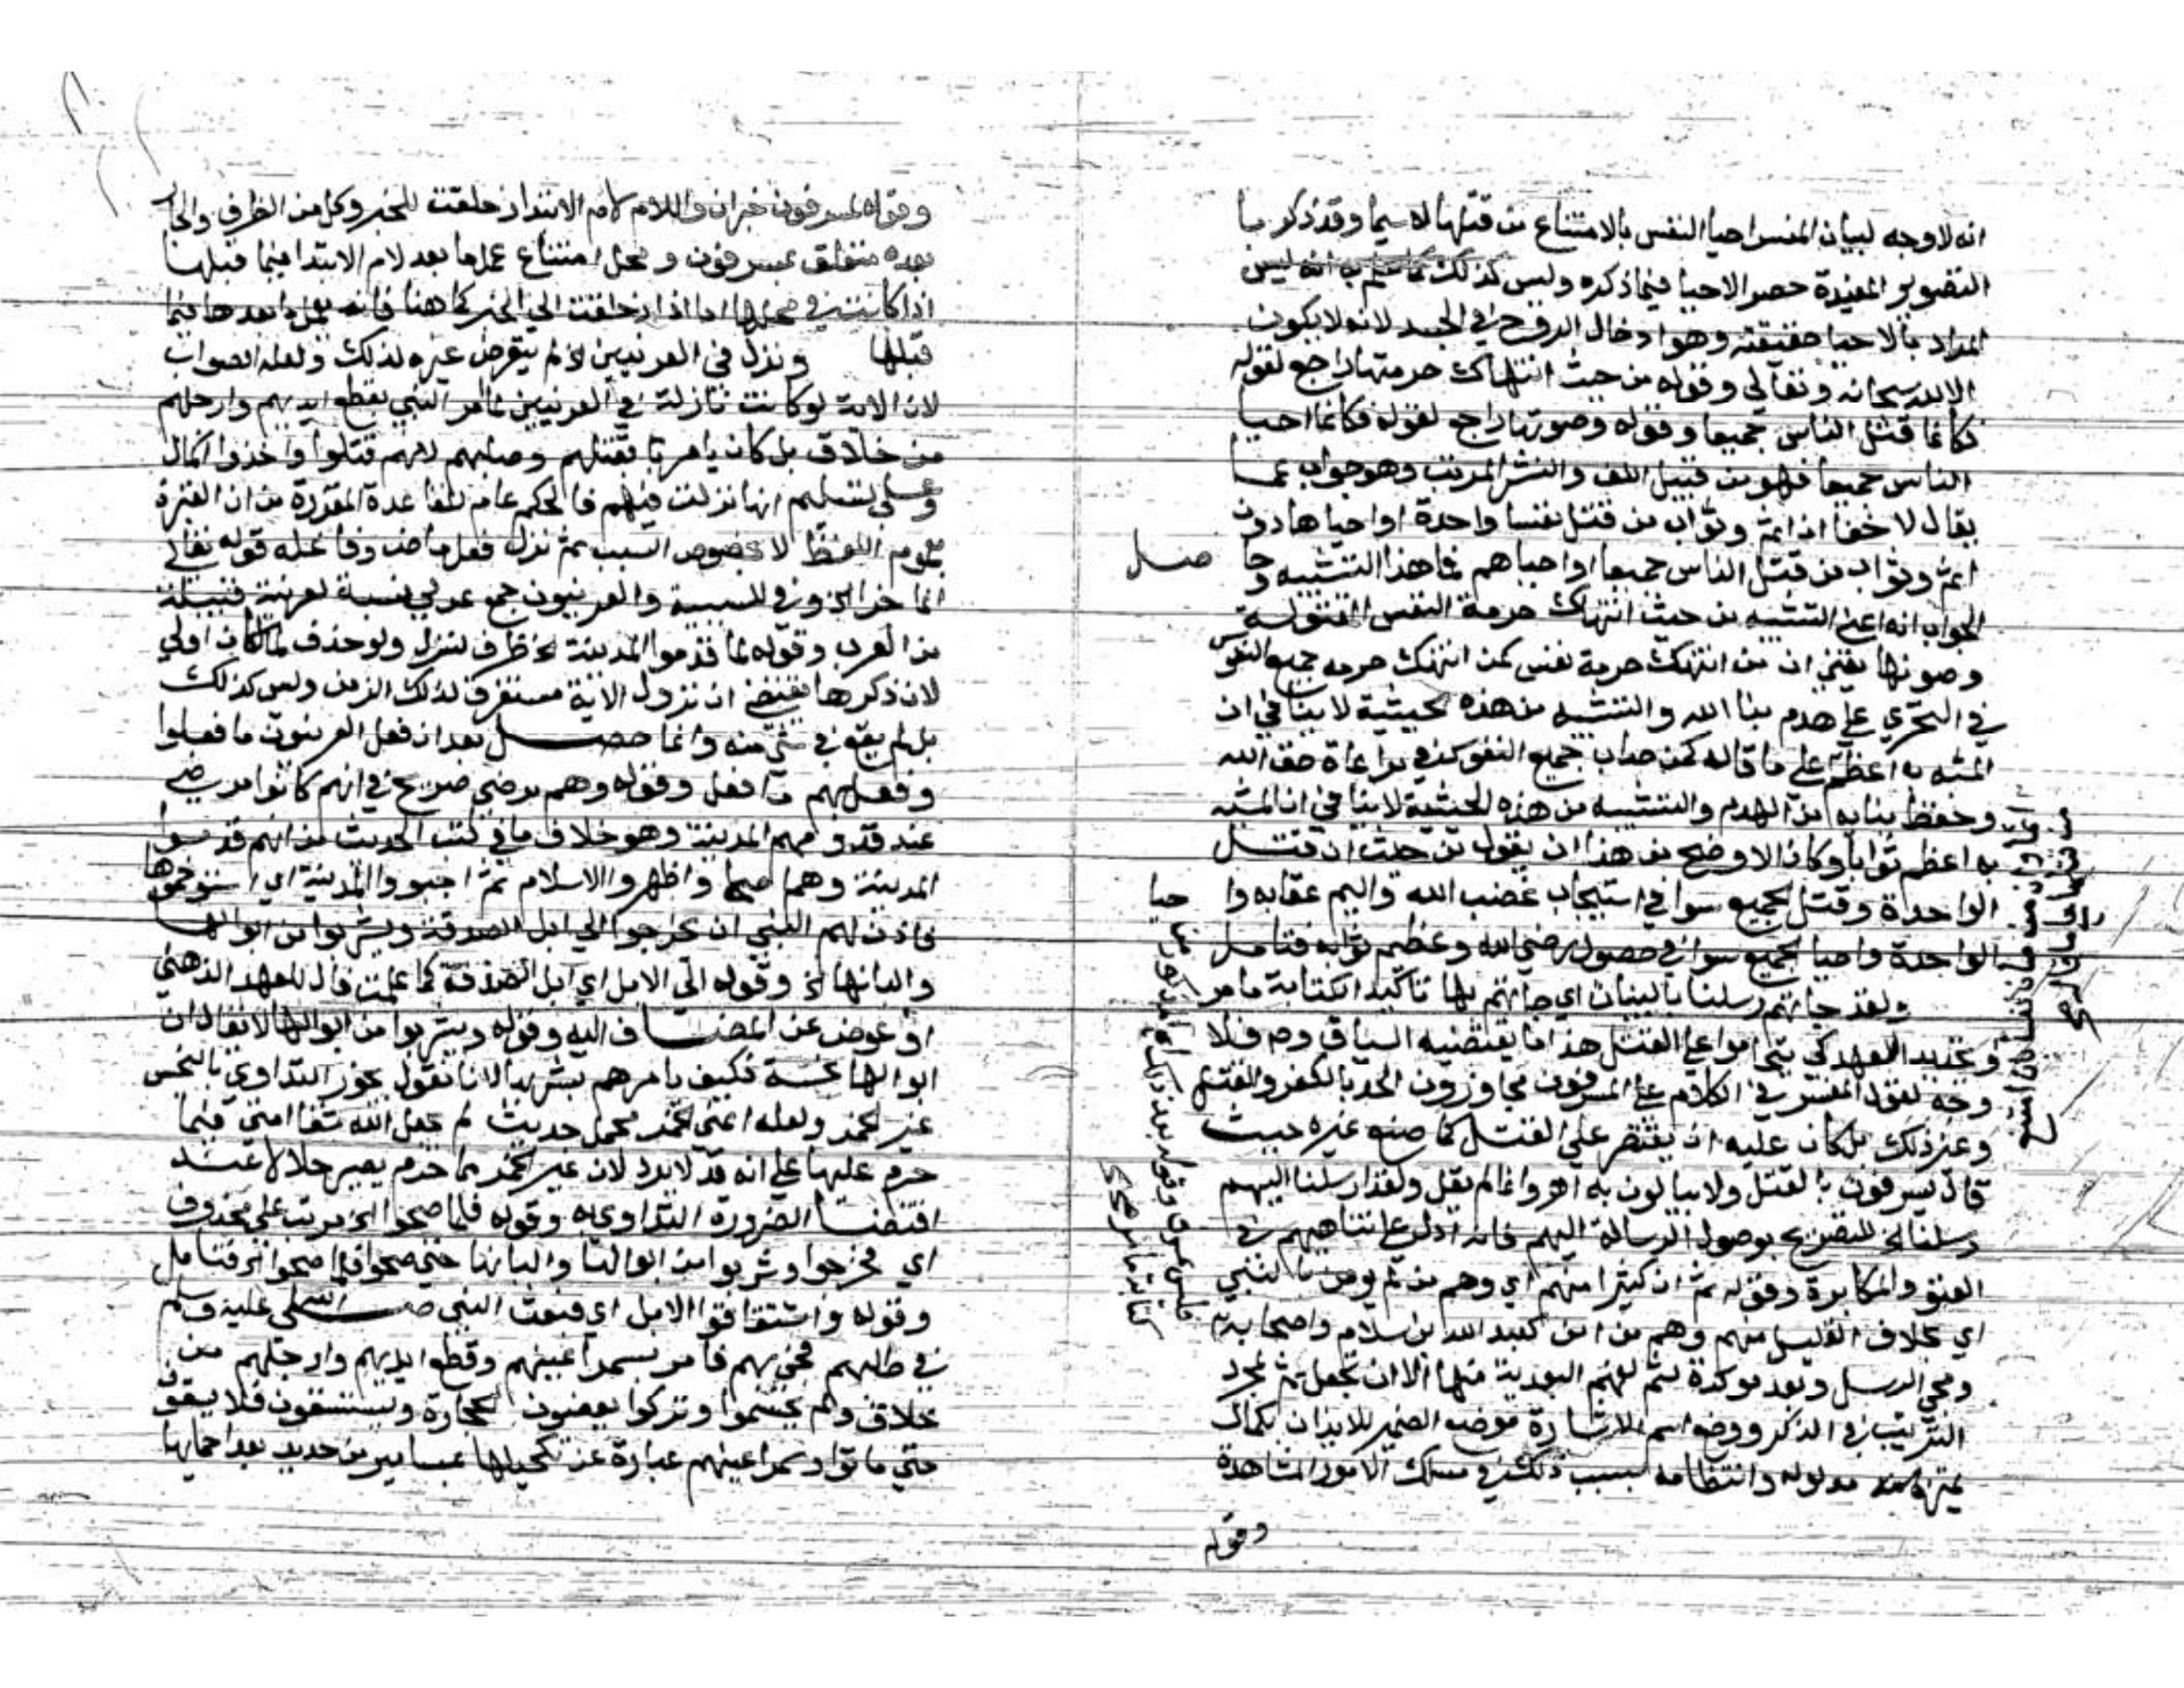 انه لا وجه لبيان المفسر احيا النفس بالامتناع من قتلها لا سيما وقد ذكر ما
التصوير المفيدة حصر الاحيا فيما ذكره وليس كذلك انه ليس
المراد بالاحيا حقيقته وهو ادخال الروح في الجسد لانه لا يكون
الا لله سبحانه وتعالى وقوله من حيث انتهاك حرمتها راجع لقوله
فكانما قتل الناس جميعا وقوله وصونها راجع لقوله فكانما احيا
الناس جميعا فهو من قبيل اللف والنشر المرتب وهو جواب عما
يقال لا خفا ان اثم وثواب من قتل نفسا واحدة او احياها دون
اثم وثواب من قتل الناس جميعا او احياهم فما هذا التشبيه وحاصل
الجواب انه اعني التشبيه من حيث انتهاك حرمة النفس المقتولة
وصونها يعني ان من انتهك حرمة نفس كمن انتهك حرمة جميع النفوس
في التجري على هدم بنا الله والتشبيه من هذه الحيثية لا ينافي ان
المشبه به اعظم على ما قاله كمن صان جميع النفوس في مراعاة حق الله
وحفظ بنايه من الهدم والتشبيه من هذه الحيثية لا ينافي ان المشبه
به اعظم ثوابا وكان الاوضح من هذا ان يقول من حيث ان قتل
الواحدة وقتل الجميع سوا في استيجاب غضب الله واليم عقابه واحيا
الواحدة واحيا الجميع سوا في حصول رضي الله وعظيم ثوابه فتامل
ولقد جاتهم رسلنا بالبينات اي جاتهم بها تاكيد الكتابة ما مر
وتجديد العهد كي على القتل هذا ما يقتضيه السياق وح فلا
وجه لقول المفسر في الكلام على المسرفون مجاوزون الحد بالكفر والقتل
وغير ذلك بل كان عليه ان يقتصر على القتل كما صنع غيره حيث
قال يسرفون بالقتل ولا يبالون به اهـ وانما لم يقل ولقد ارسلنا اليهم
رسلنا الخ للتصريح بوصول الرسالة اليهم فانه ادل على تناهيهم في
العتو والمكابرة وقوله ثم ان كثيرا منهم اي وهم من لم يومن بالنبي
اي بخلاف القليل منهم وهم من امن كعبد الله بن سلام واصحابه
ومجي الرسل وبعد موكدة لثم لفهم البعدية منها الا ان تجعل ثم لمجرد
الترتيب في الذكر ووضع اسم الاشارة موضع الضمير للايذان بكمال
مدلوله وانتظامه بسبب ذلك في مسلك الامور المشاهدة
وقوله
وقوله لمسرفون خبر ان واللام لام الابتدا زحلقت للخبر وكل من الظرف والجار
بعده متعلق بمسرفون ومحل امتناع عمل ما بعد لام الابتدا فيما قبلها
اذا كانت في محلها اما اذا زحلقت الى الخبر كما هنا فانه يعمل ما بعدها فيما
قبلها ونزل في العرنيين لم يتعرض غيره لذلك ولعله الصواب
لان الاية لو كانت نازلة في العرنيين لما امر النبي بقطع ايديهم وارجلهم
من خلاف بل كان يامر بقتلهم وصلبهم لانهم قتلوا واخذوا المال
وعلى تسليم انها نزلت فيهم فالحكم عام للقاعدة المقررة من ان العبرة
بعموم اللفظ لا بخصوص السبب ثم نزل فعل ماض وفاعله قوله تعالى
انما جزا الخ وفي للسببية والعرنيون جمع عرني نسبة لعرينة قبيلة
من العرب وقوله لما قدموا المدينة الخ ظرف لنزل ولو حذف لما لكان اولى
لان ذكرها يقتضي ان نزول الاية مستغرق لذلك الزمن وليس كذلك
بل لم يقع في شي منه وانما حصل بعد ان فعل العرنيون ما فعلوا
وفعل بهم ما فعل وقوله وهم مرضى صريح في انهم كانوا مرضى
عند قدومهم المدينة وهو خلاف ما في كتب الحديث من انهم قدموا
المدينة وهم اصحا واظهروا الاسلام ثم اجتووا المدينة اي استوخموها
فاذن لهم النبي ان يخرجوا الى ابل الصدقة ويشربوا من ابوالها
والبانها الخ وقوله الى الابل اي ابل الصدقة كما علمت فال للعهد الذهني
او عوض عن المضاف اليه وقوله ويشربوا من ابوالها لا يقال ان
ابوالها نجسة فكيف يامرهم بشربها لانا نقول يجوز التداوي بالنجس
غير الخمر ولعله اعني الخمر محمل حديث لم يجعل الله شفا امتي فيما
حرم عليها على انه قد لا يرد لان غير الخمر مما حرم يصير حلالا عند
اقتضا الضرورة التداوي به وقوله فلما صحوا الخ مرتب على محذوف
اي فخرجوا وشربوا من ابوالها والبانها حتى صحوا فلما صحوا الخ فتامل
وقوله واستاقوا الابل اي فبعث النبي صلى الله عليه وسلم
في طلبهم فجي بهم فامر بسمر اعينهم وقطع ايديهم وارجلهم من
خلاف ولم يحسموا وتركوا يعضون الحجارة ويستسقون فلا يسقون
حتى ماتوا وسمر اعينهم عبارة عن تكحيلها بمسامير من حديد بعد احمايها